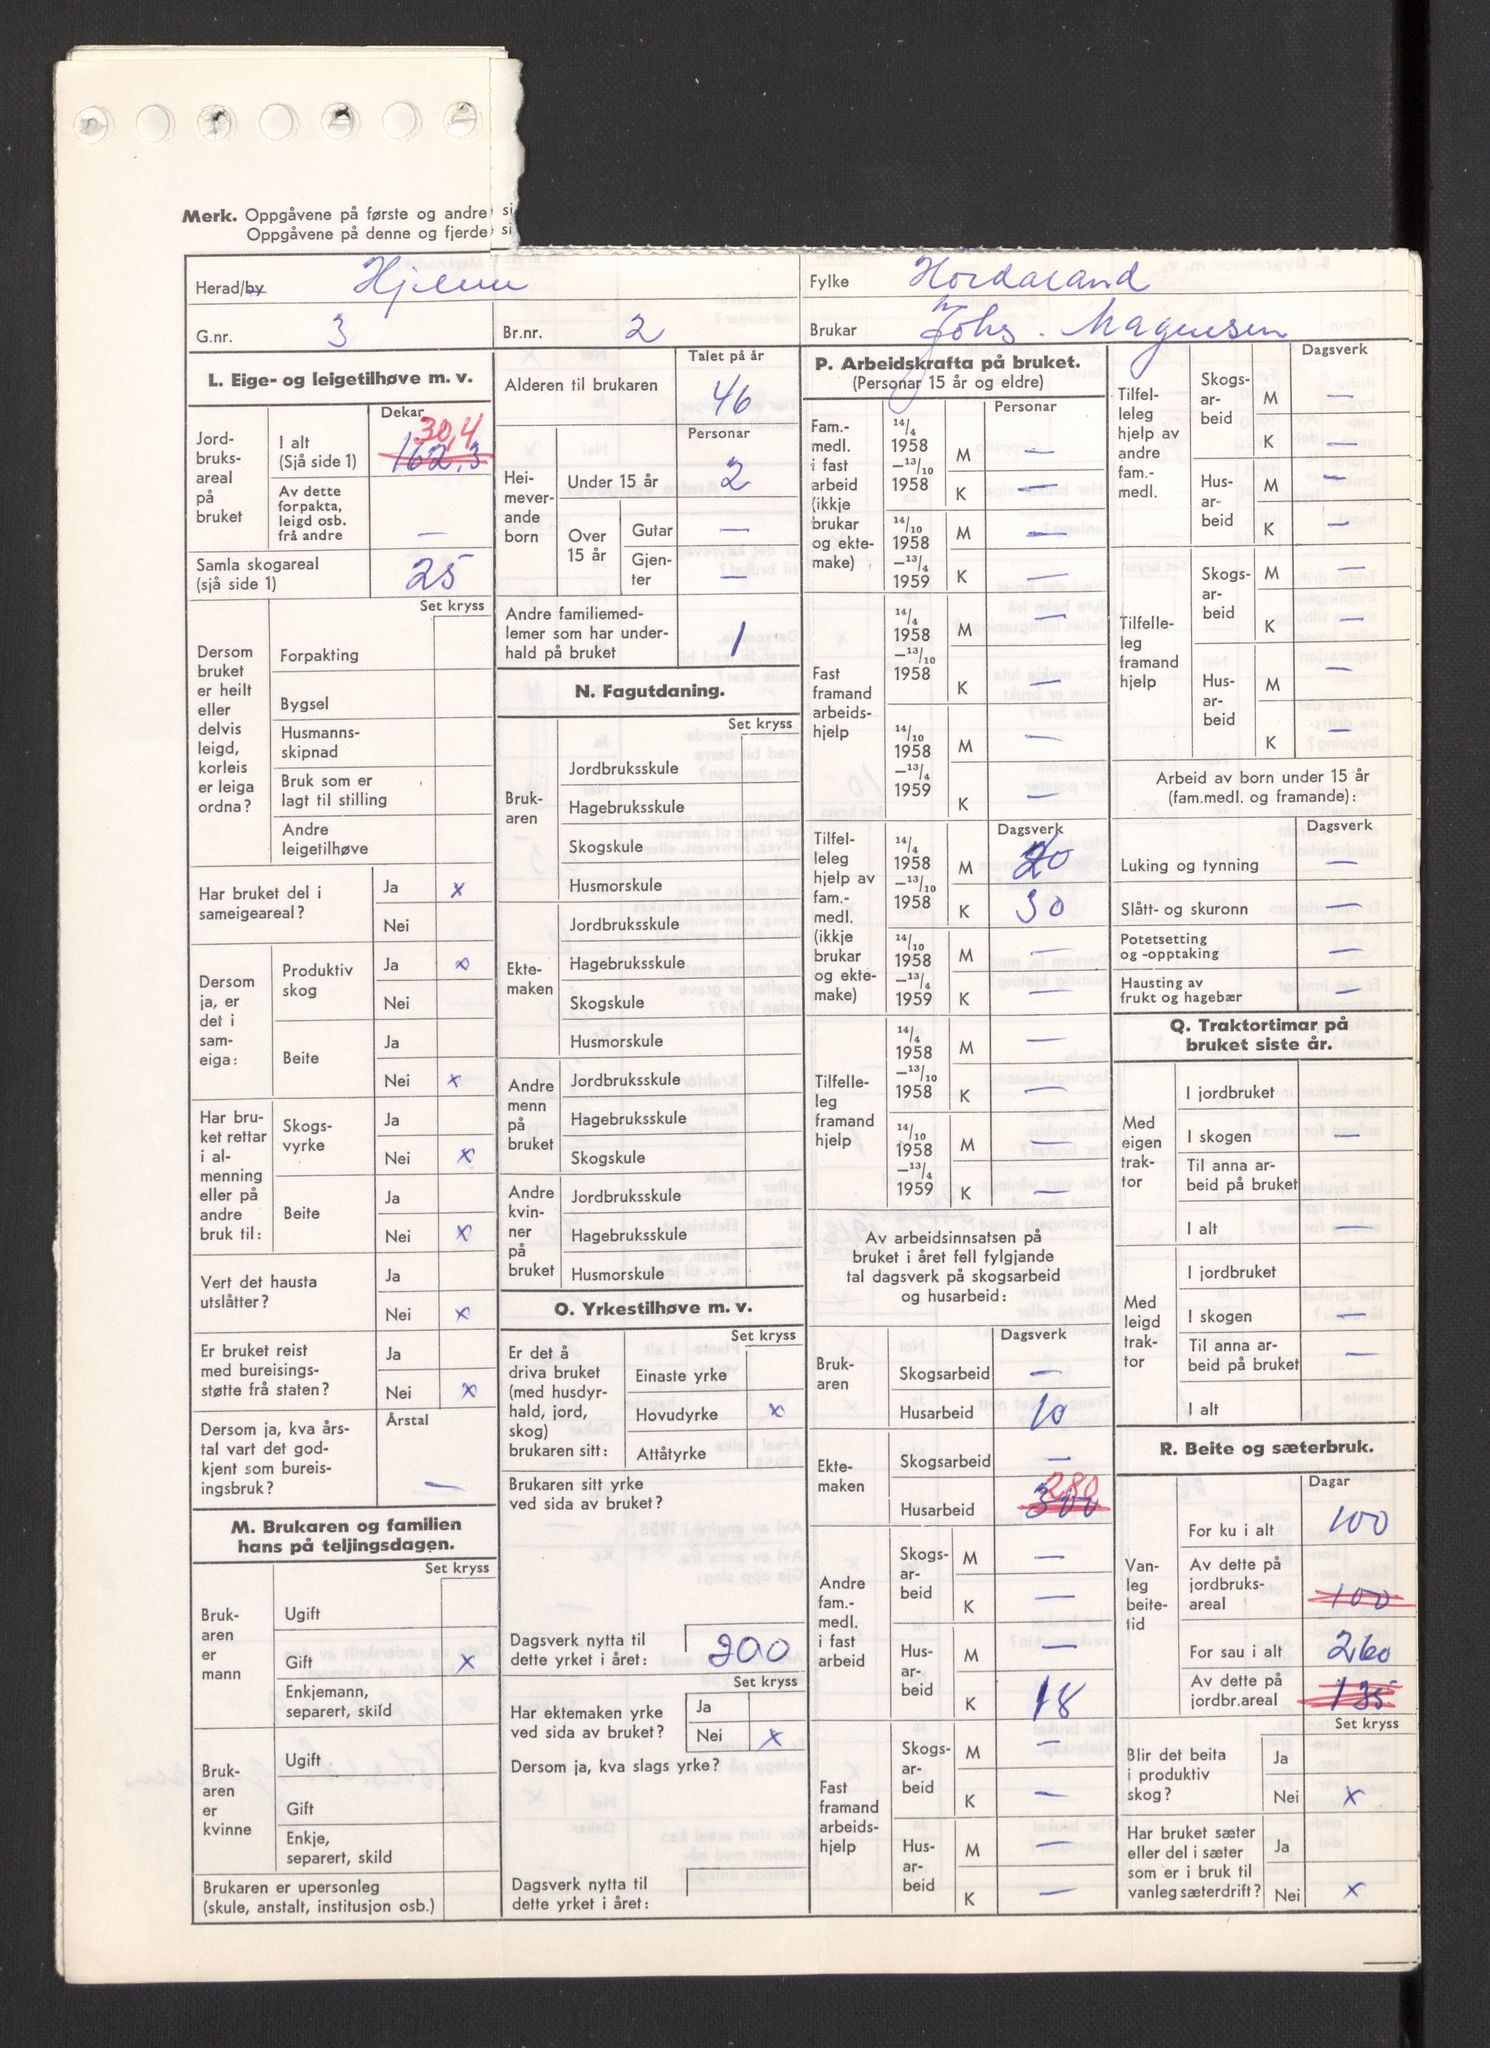 Merk. Oppgåvene på første og andre si
Oppgåvene på denne og fjerde si
Herad/by Hjelme
Fylke Hordaland
G.nr. 3
Br.nr. 2
Brukar Johs. Magnusen
L. Eige- og leigetilhøve m. v.
Dekar
Jordbruksareal på bruket
I alt (Sjå side 1) 30,4 162,3
Av dette forpakta, leigd osb. frå andre —
Samla skogareal (sjå side 1) 25
Set kryss
Dersom bruket er heilt eller delvis leigd, korleis er leiga ordna?
Forpakting
Bygsel
Husmannsskipnad
Bruk som er lagt til stilling
Andre leigetilhøve
Har bruket del i sameigeareal?
Ja x
Nei
Dersom ja, er det i sameiga:
Produktiv skog
Ja x
Nei
Beite
Ja
Nei x
Har bruket rettar i almenning eller på andre bruk til:
Skogsvyrke
Ja
Nei x
Beite
Ja
Nei x
Vert det hausta utslåtter?
Ja
Nei x
Er bruket reist med bureisingsstøtte frå staten?
Ja
Nei x
Dersom ja, kva årstal vart det godkjent som bureisingsbruk?
Årstal
—
M. Brukaren og familien hans på teljingsdagen.
Set kryss
Brukaren er mann
Ugift
Gift x
Enkjemann, separert, skild
Brukaren er kvinne
Ugift
Gift
Enkje, separert, skild
Brukaren er upersonleg (skule, anstalt, institusjon osb.)
Talet på år
Alderen til brukaren 46
Personar
Heimeverande born
Under 15 år 2
Over 15 år
Gutar —
Gjenter —
Andre familiemedlemer som har underhald på bruket 1
N. Fagutdaning.
Set kryss
Brukaren
Jordbruksskule
Hagebruksskule
Skogskule
Husmorskule
Ektemaken
Jordbruksskule
Hagebruksskule
Skogskule
Husmorskule
Andre menn på bruket
Jordbruksskule
Hagebruksskule
Skogskule
Andre kvinner på bruket
Jordbruksskule
Hagebruksskule
Husmorskule
O. Yrkestilhøve m. v.
Set kryss
Er det å driva bruket (med husdyrhald, jord, skog) brukaren sitt:
Einaste yrke
Hovudyrke x
Attåtyrke
Brukaren sitt yrke ved sida av bruket?
Dagsverk nytta til dette yrket i året: 200
Set kryss
Har ektemaken yrke ved sida av bruket?
Ja
Nei x
Dersom ja, kva slags yrke?
Dagsverk nytta til dette yrket i året:
P. Arbeidskrafta på bruket.
(Personar 15 år og eldre)
Personar
Fam.medl. i fast arbeid (ikkje brukar og ektemake)
14/4 1958 —13/10 1958
M —
K —
14/10 1958 —13/4 1959
M —
K —
Fast framand arbeidshjelp
14/4 1958 —13/10 1958
M —
K —
14/10 1958 —13/4 1959
M —
K —
Dagsverk
Tilfelleleg hjelp av fam.medl. (ikkje brukar og ektemake)
14/4 1958 —13/10 1958
M 20
K 30
14/10 1958 —13/4 1959
M —
K —
Tilfelleleg framand hjelp
14/4 1958 —13/10 1958
M —
K —
14/10 1958 —13/4 1959
M —
K —
Av arbeidsinnsatsen på bruket i året fell fylgjande tal dagsverk på skogsarbeid og husarbeid:
Dagsverk
Brukaren
Skogsarbeid —
Husarbeid 10
Ektemaken
Skogsarbeid —
Husarbeid 280 300
Andre fam.medl. i fast arbeid
Skogsarbeid
M —
K —
Husarbeid
M —
K 18
Fast framand arbeidshjelp
Skogsarbeid
M —
K —
Husarbeid
M —
K —
Dagsverk
Tilfelleleg hjelp av andre fam.medl.
Skogsarbeid
M —
K —
Husarbeid
M —
K —
Tilfelleleg framand hjelp
Skogsarbeid
M —
K —
Husarbeid
M —
K —
Arbeid av born under 15 år (fam.medl. og framande):
Dagsverk
Luking og tynning —
Slått- og skuronn —
Potetsetting og -opptaking —
Hausting av frukt og hagebær —
Q. Traktortimar på bruket siste år.
Med eigen traktor
I jordbruket
I skogen —
Til anna arbeid på bruket —
I alt —
Med leigd traktor
I jordbruket —
I skogen —
Til anna arbeid på bruket —
I alt
R. Beite og sæterbruk.
Dagar
Vanleg beitetid
For ku i alt 100
Av dette på jordbruksareal 100
For sau i alt 260
Av dette på jordbr.areal 135
Set kryss
Blir det beita i produktiv skog?
Ja
Nei x
Har bruket sæter eller del i sæter som er i bruk til vanleg sæterdrift?
Ja
Nei x